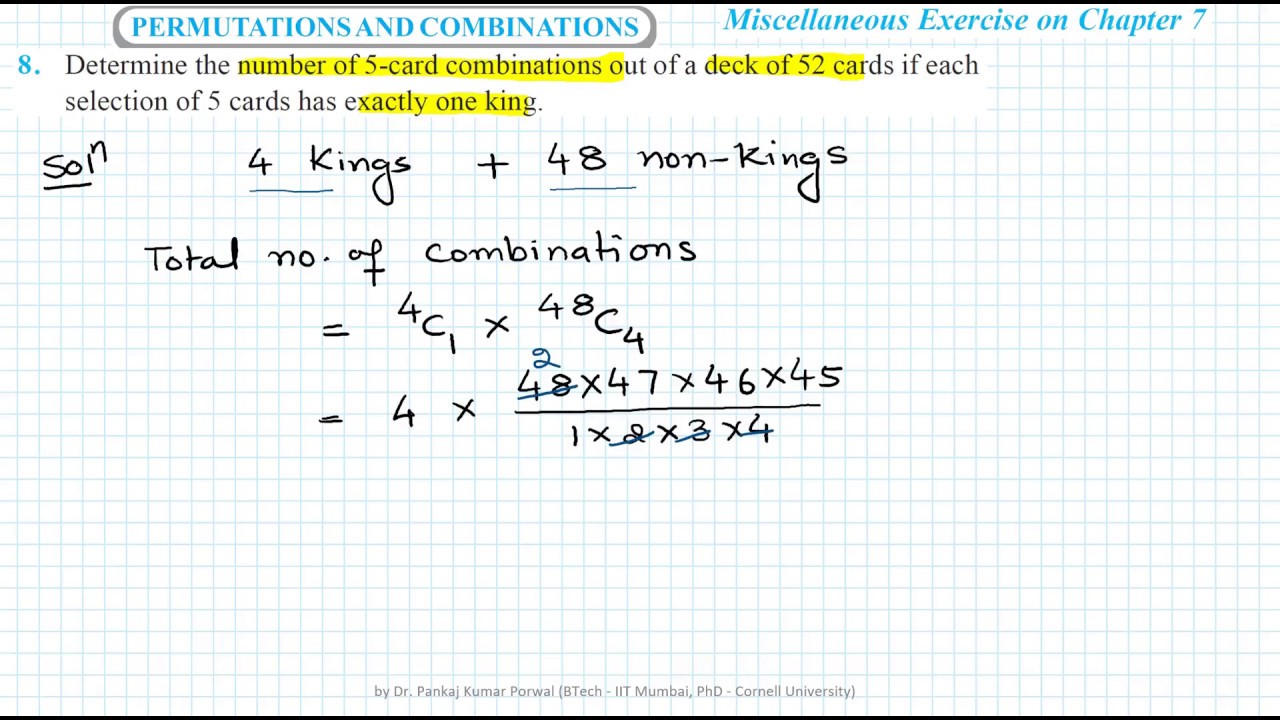 PERMUTATIONS AND COMBINATIONS
Miscellaneous Exercise on Chapter 7
8. Determine the number of 5-card combinations out of a deck of 52 cards if each
selection of 5 cards has exactly one king.
Solⁿ 4 Kings + 48 non-Kings
Total no. of combinations
= ⁴C₁ × ⁴⁸C₄
2
= 4 × 48×47×46×45
1×2×3×4
by Dr. Pankaj Kumar Porwal (BTech - IIT Mumbai, PhD - Cornell University)